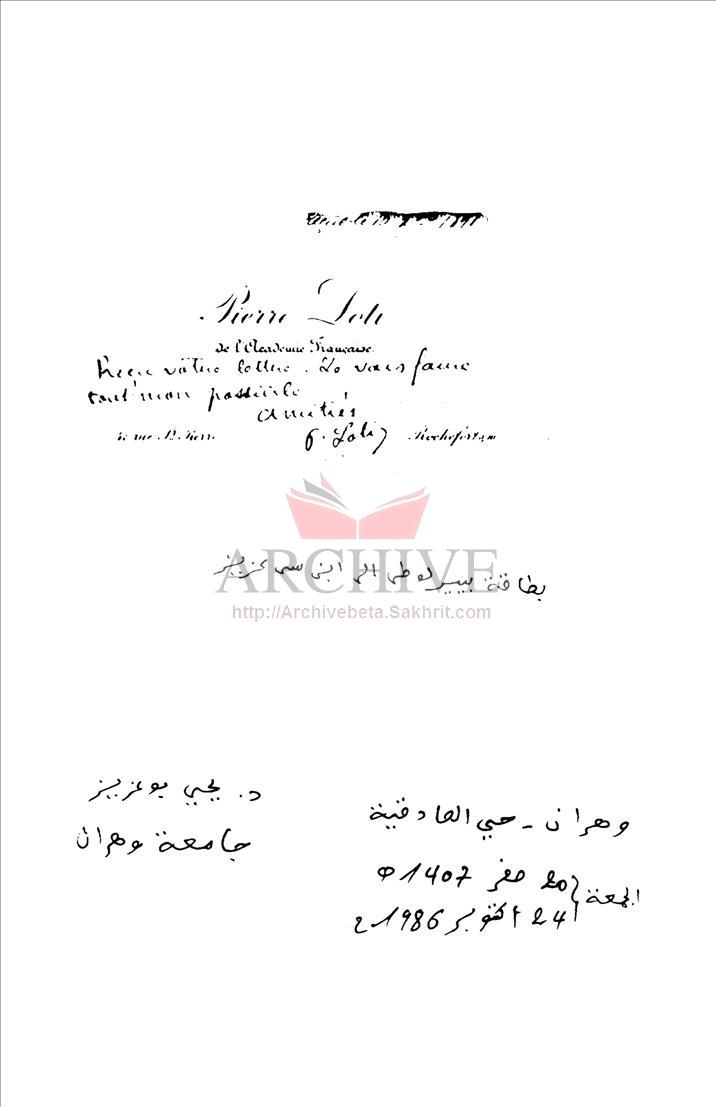 Pierre Loti
de l'Academie Française
Reçu votre lettre. Je vais faire
tout mon possible
amitiés
P. Loti
Rochefort s/m
ARCHIVE
http://Archivebeta.Sakhrit.com
بطاقة بيير لوطي الى ابن سي عزيز
د. يحيى بوعزيز
جامعة وهران
وهران - حي الصادقية
الجمعة
20 صفر 1407 ه
24 أكتوبر 1986 م